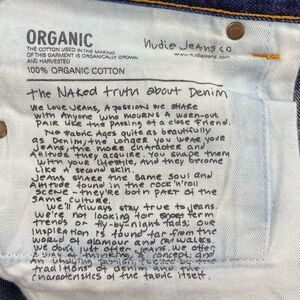 ORGANIC
THE COTTON USED IN THE MAKING
OF THIS GARMENT IS ORGANICALLY GROWN
AND HARVESTED
100% ORGANIC COTTON
nudie Jeans co
www.nudiejeans.com
the Naked truth about Denim
We love Jeans, A passion we share
with Anyone who mourns A worn-out
pair like the passing of a close friend.
No fabric Ages quite as beautifully
as Denim, the longer you wear your
Jeans, the more character and
Attitude they acquire. You shape them
with your lifestyle, And they become
like a second skin.
Jeans share the same soul and
Attitude found in the rock'n'roll
scene – they're both part of the
same culture.
We'll Always stay true to jeans.
we're not looking for short term
trends or fly-by-night fads; our
inspiration is found far from the
world of glamour and catwalks
We don't just offer jeans, we offer
a way of thinking, a concept, and
an undying passion
traditions of denim and the
characteristics of the fabric itself.